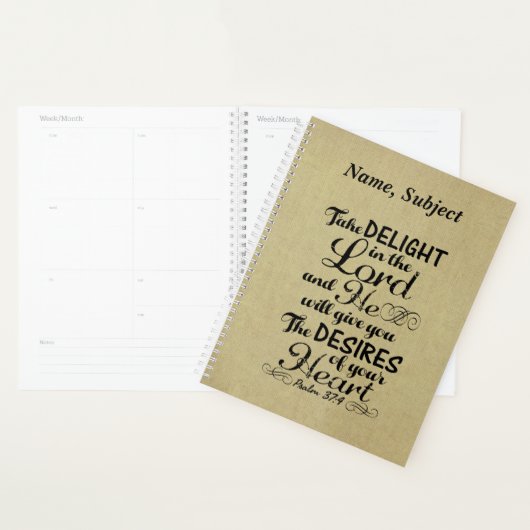 Week/Month:
Week/Month:
Notes
Name, Subject
Take DELIGHT
in the
Lord
and He
will give you
The DESIRES
of your
Heart
Psalm 37:4